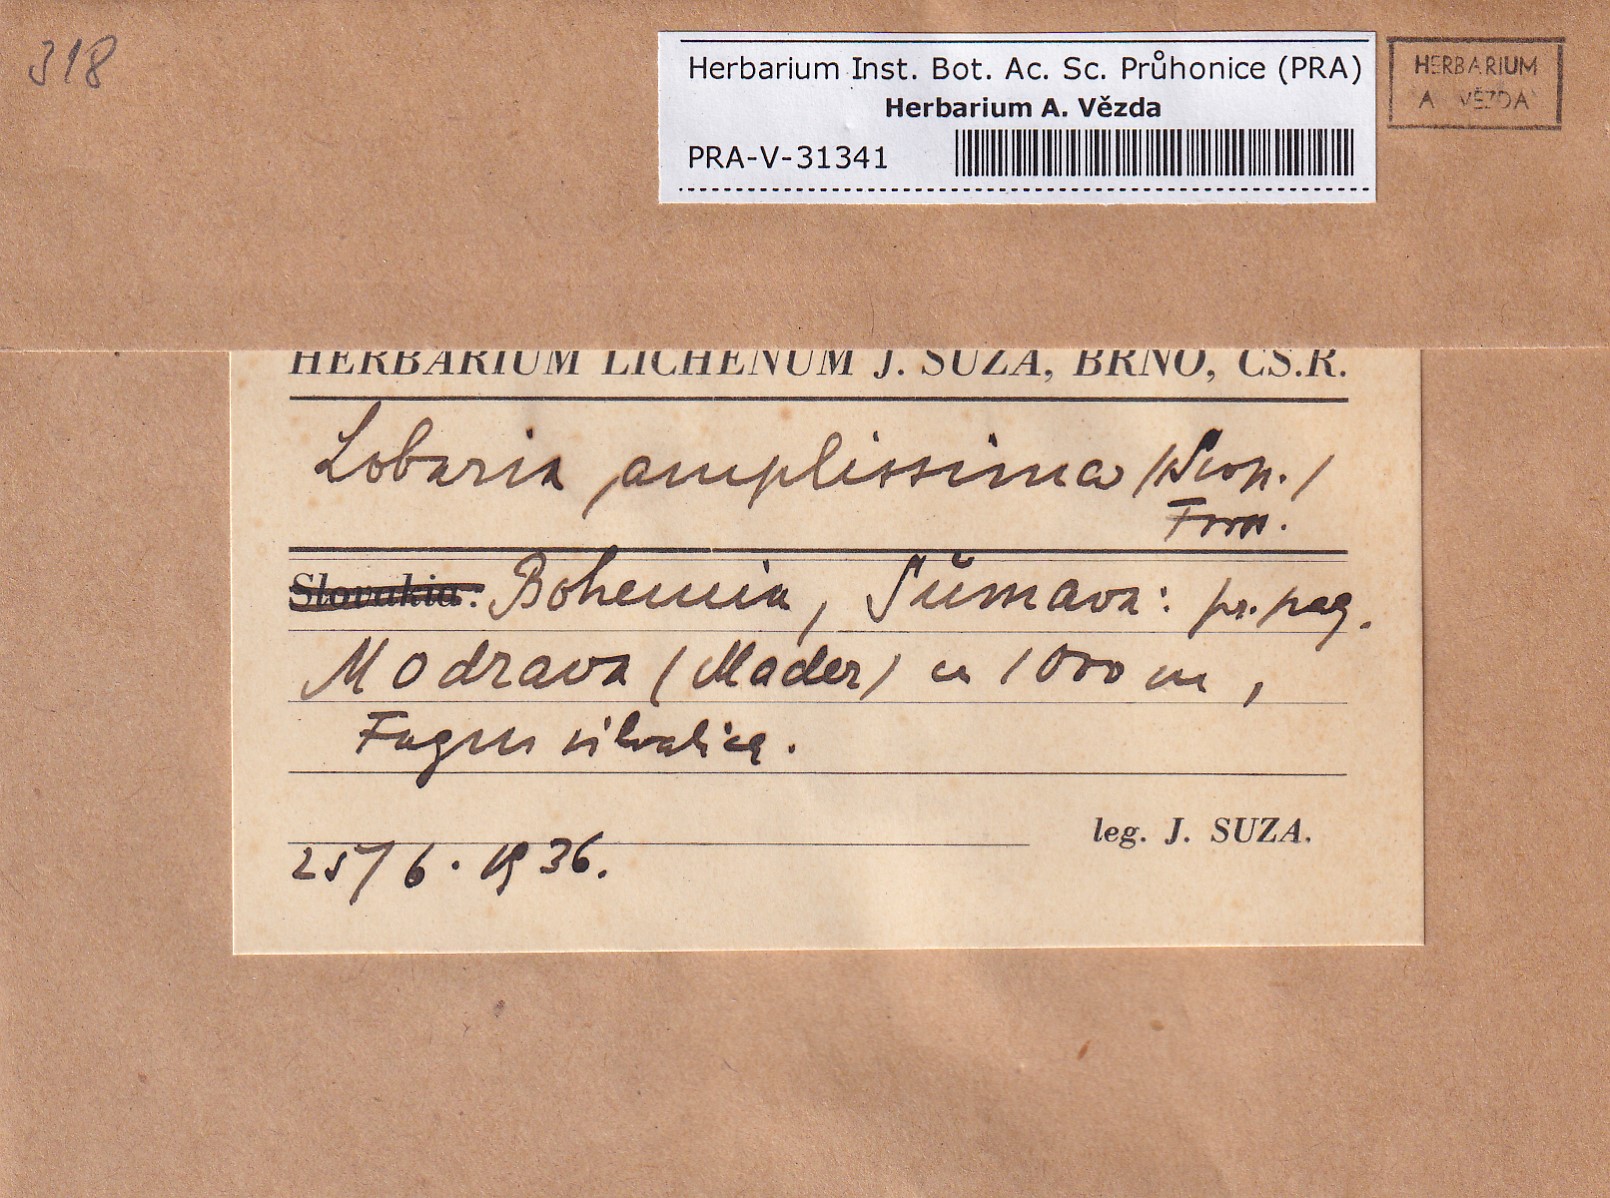 318
Herbarium Inst. Bot. Ac. Sc. Průhonice (PRA)
Herbarium A. Vězda
PRA-V-31341
HERBARIUM
A. VĚZDA
HERBARIUM LICHENUM J. SUZA, BRNO, ČS.R.
Lobaria amplissima /Scop./
Forss.
Slovakia: Bohemia, Šumava: pr. pag.
Modrava (Mader) ca 1000 m,
Fagus silvatica.
leg. J. SUZA.
25/6. 1936.